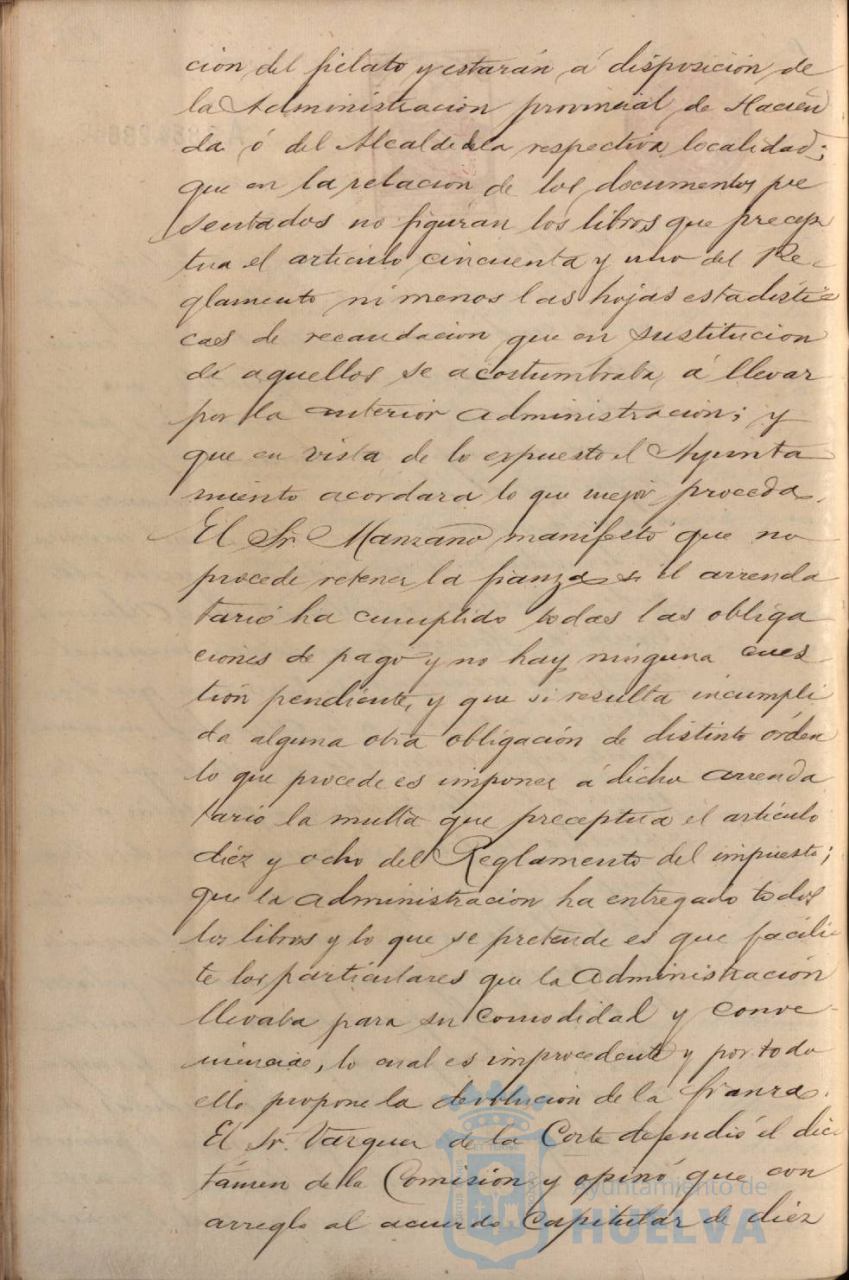 cion del fielato y estarán á disposición de
la Administracion provincial de Hacien
da ó del Alcalde de la respectiva localidad;
que en la relacion de los documentos pre
sentados no figuran los libros que precep
tua el artículo cincuenta y uno del Re-
glamento ni menos las hojas estadísti-
cas de recaudacion que en sustitucion
de aquellos se acostumbraba á llevar
por la anterior administracion; y
que en vista de lo expuesto el Ayunta
miento acordara lo que mejor proceda.
El Sr. Manzano manifestó que no
procede retener la fianza si el arrenda
tario ha cumplido todas las obliga
ciones de pago y no hay ninguna cues-
tión pendiente, y que si resulta incumpli
da alguna otra obligación de distinto órden
lo que procede es imponer á dicho arrenda
tario la multa que preceptua el artículo
diez y ocho del Reglamento del impuesto;
que la administración ha entregado todos
los libros y lo que se pretende es que facili
te los particulares que la Administración
llevaba para su comodidad y conve-
niencia, lo cual es improcedente y por todo
ello propone la devolucion de la fianza.
El Sr. Vazquez de la Corte defendió el dic
támen de la Comisión y opinó que con
arreglo al acuerdo Capitular de diez
Ayuntamiento de
HUELVA